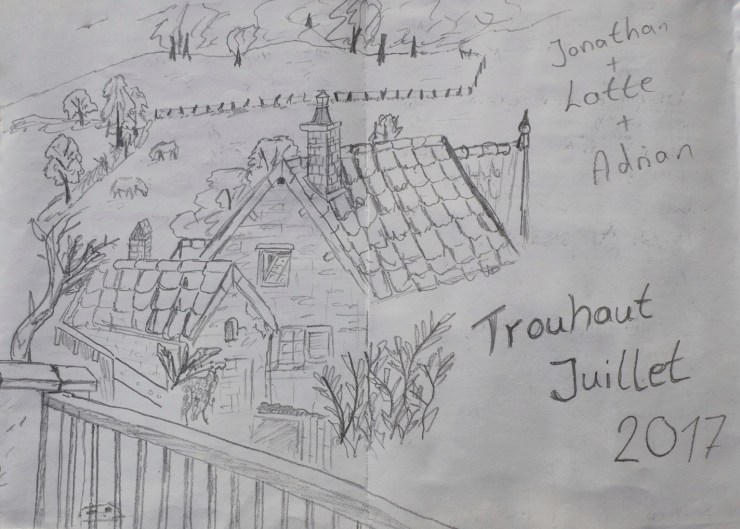 Jonathan
+
Lotte
+
Adrian
Trouhaut
Juillet
2017